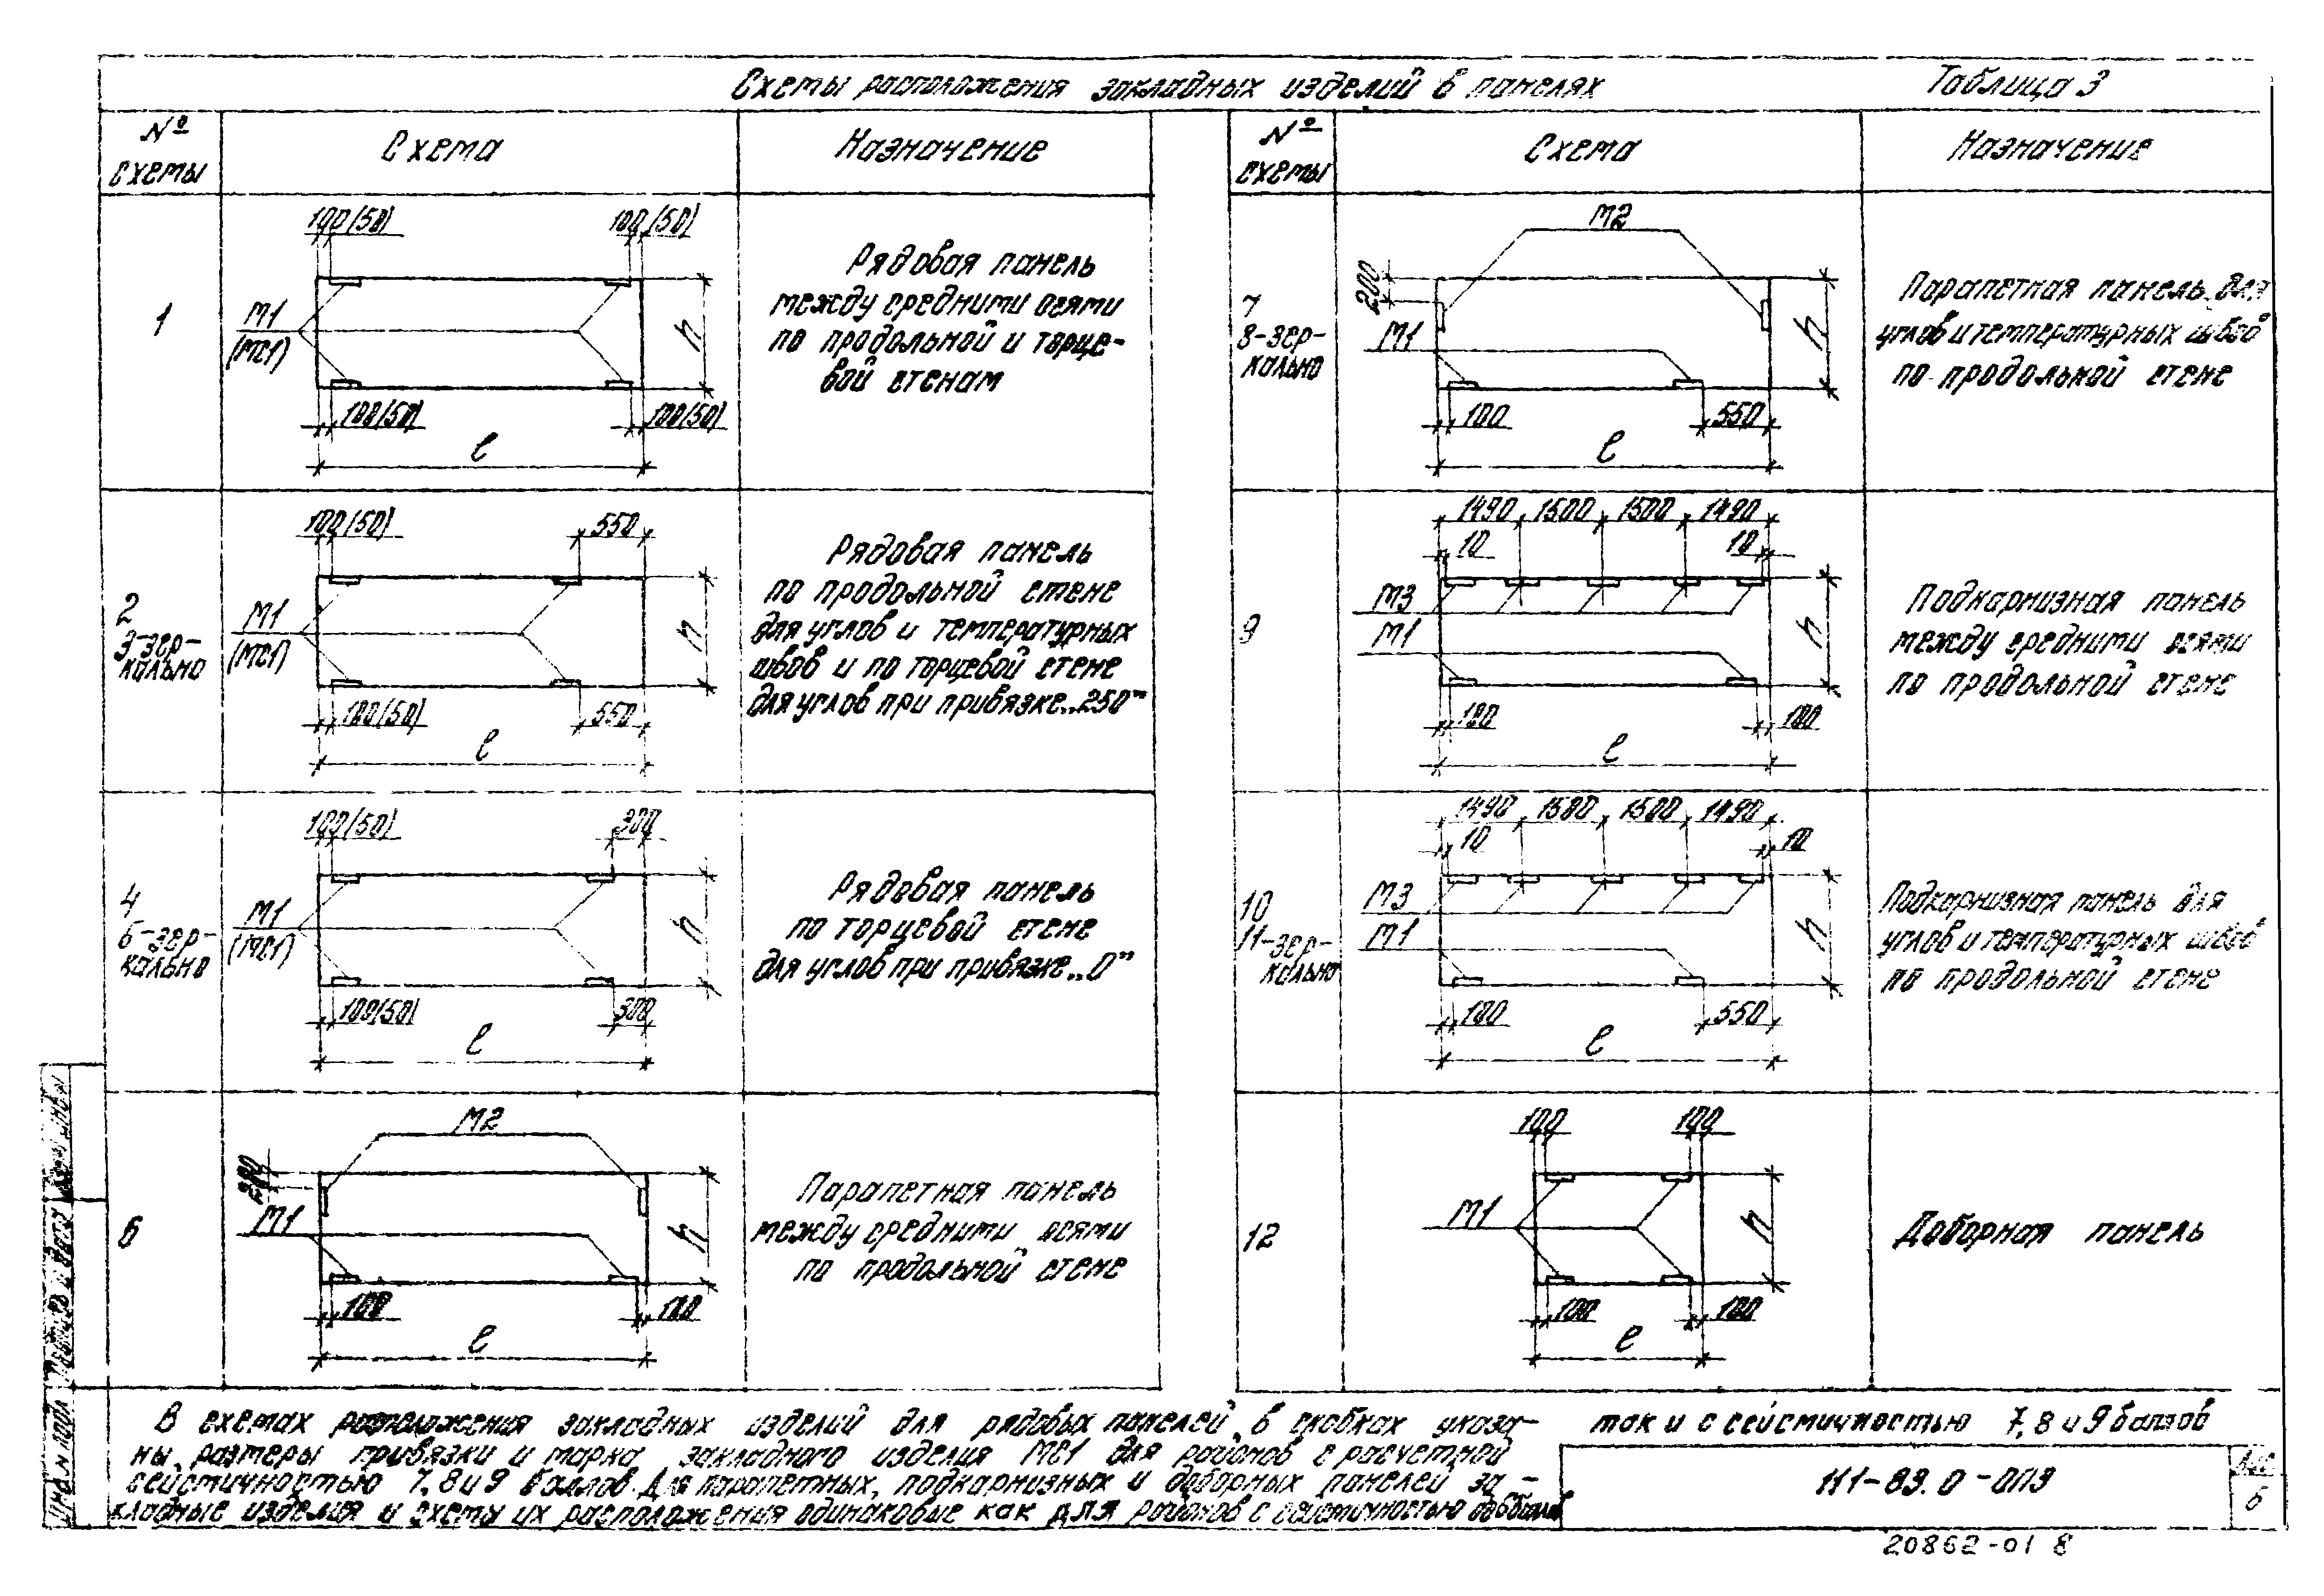 Схемы расположения закладных изделий в панелях
Таблица 3
№ схемы
Схема
Назначение
1
100(50)
100(50)
М1
(МС1)
h
100(50)
100(50)
l
Рядовая панель
между средними осями
по продольной и торце-
вой стенам
2
3-зер-
кально
100(50)
550
М1
(МС1)
h
100(50)
550
l
Рядовая панель
по продольной стене
для углов и температурных
швов и по торцевой стене
для углов при привязке „250"
4
5-зер-
кально
100(50)
300
М1
(МС1)
h
100(50)
300
l
Рядовая панель
по торцевой стене
для углов при привязке „0"
6
М2
200
М1
h
100
100
l
Парапетная панель
между средними осями
по продольной стене
№ схемы
Схема
Назначение
7
8-зер-
кально
М2
200
М1
h
100
550
l
Парапетная панель для
углов и температурных швов
по продольной стене
9
1490 1500 1500 1490
10
10
М3
М1
h
100
100
l
Подкарнизная панель
между средними осями
по продольной стене
10
11-зер-
кально
1490 1500 1500 1490
10
10
М3
М1
h
100
550
l
Подкарнизная панель для
углов и температурных швов
по продольной стене
12
100
100
М1
h
100
100
l
Доборная панель
В схемах расположения закладных изделий для рядовых панелей в скобках указа-
ны размеры привязки и марка закладного изделия МС1 для районов с расчетной
сейсмичностью 7, 8 и 9 баллов. Для парапетных, подкарнизных и доборных панелей за-
кладные изделия и схемы их расположения одинаковые как для районов с сейсмичностью до 6 баллов
так и с сейсмичностью 7, 8 и 9 баллов
Инв. № подл.
Подпись и дата
Взам. инв. №
111-89.0-0ПЗ
Лист
6
20862-01 8